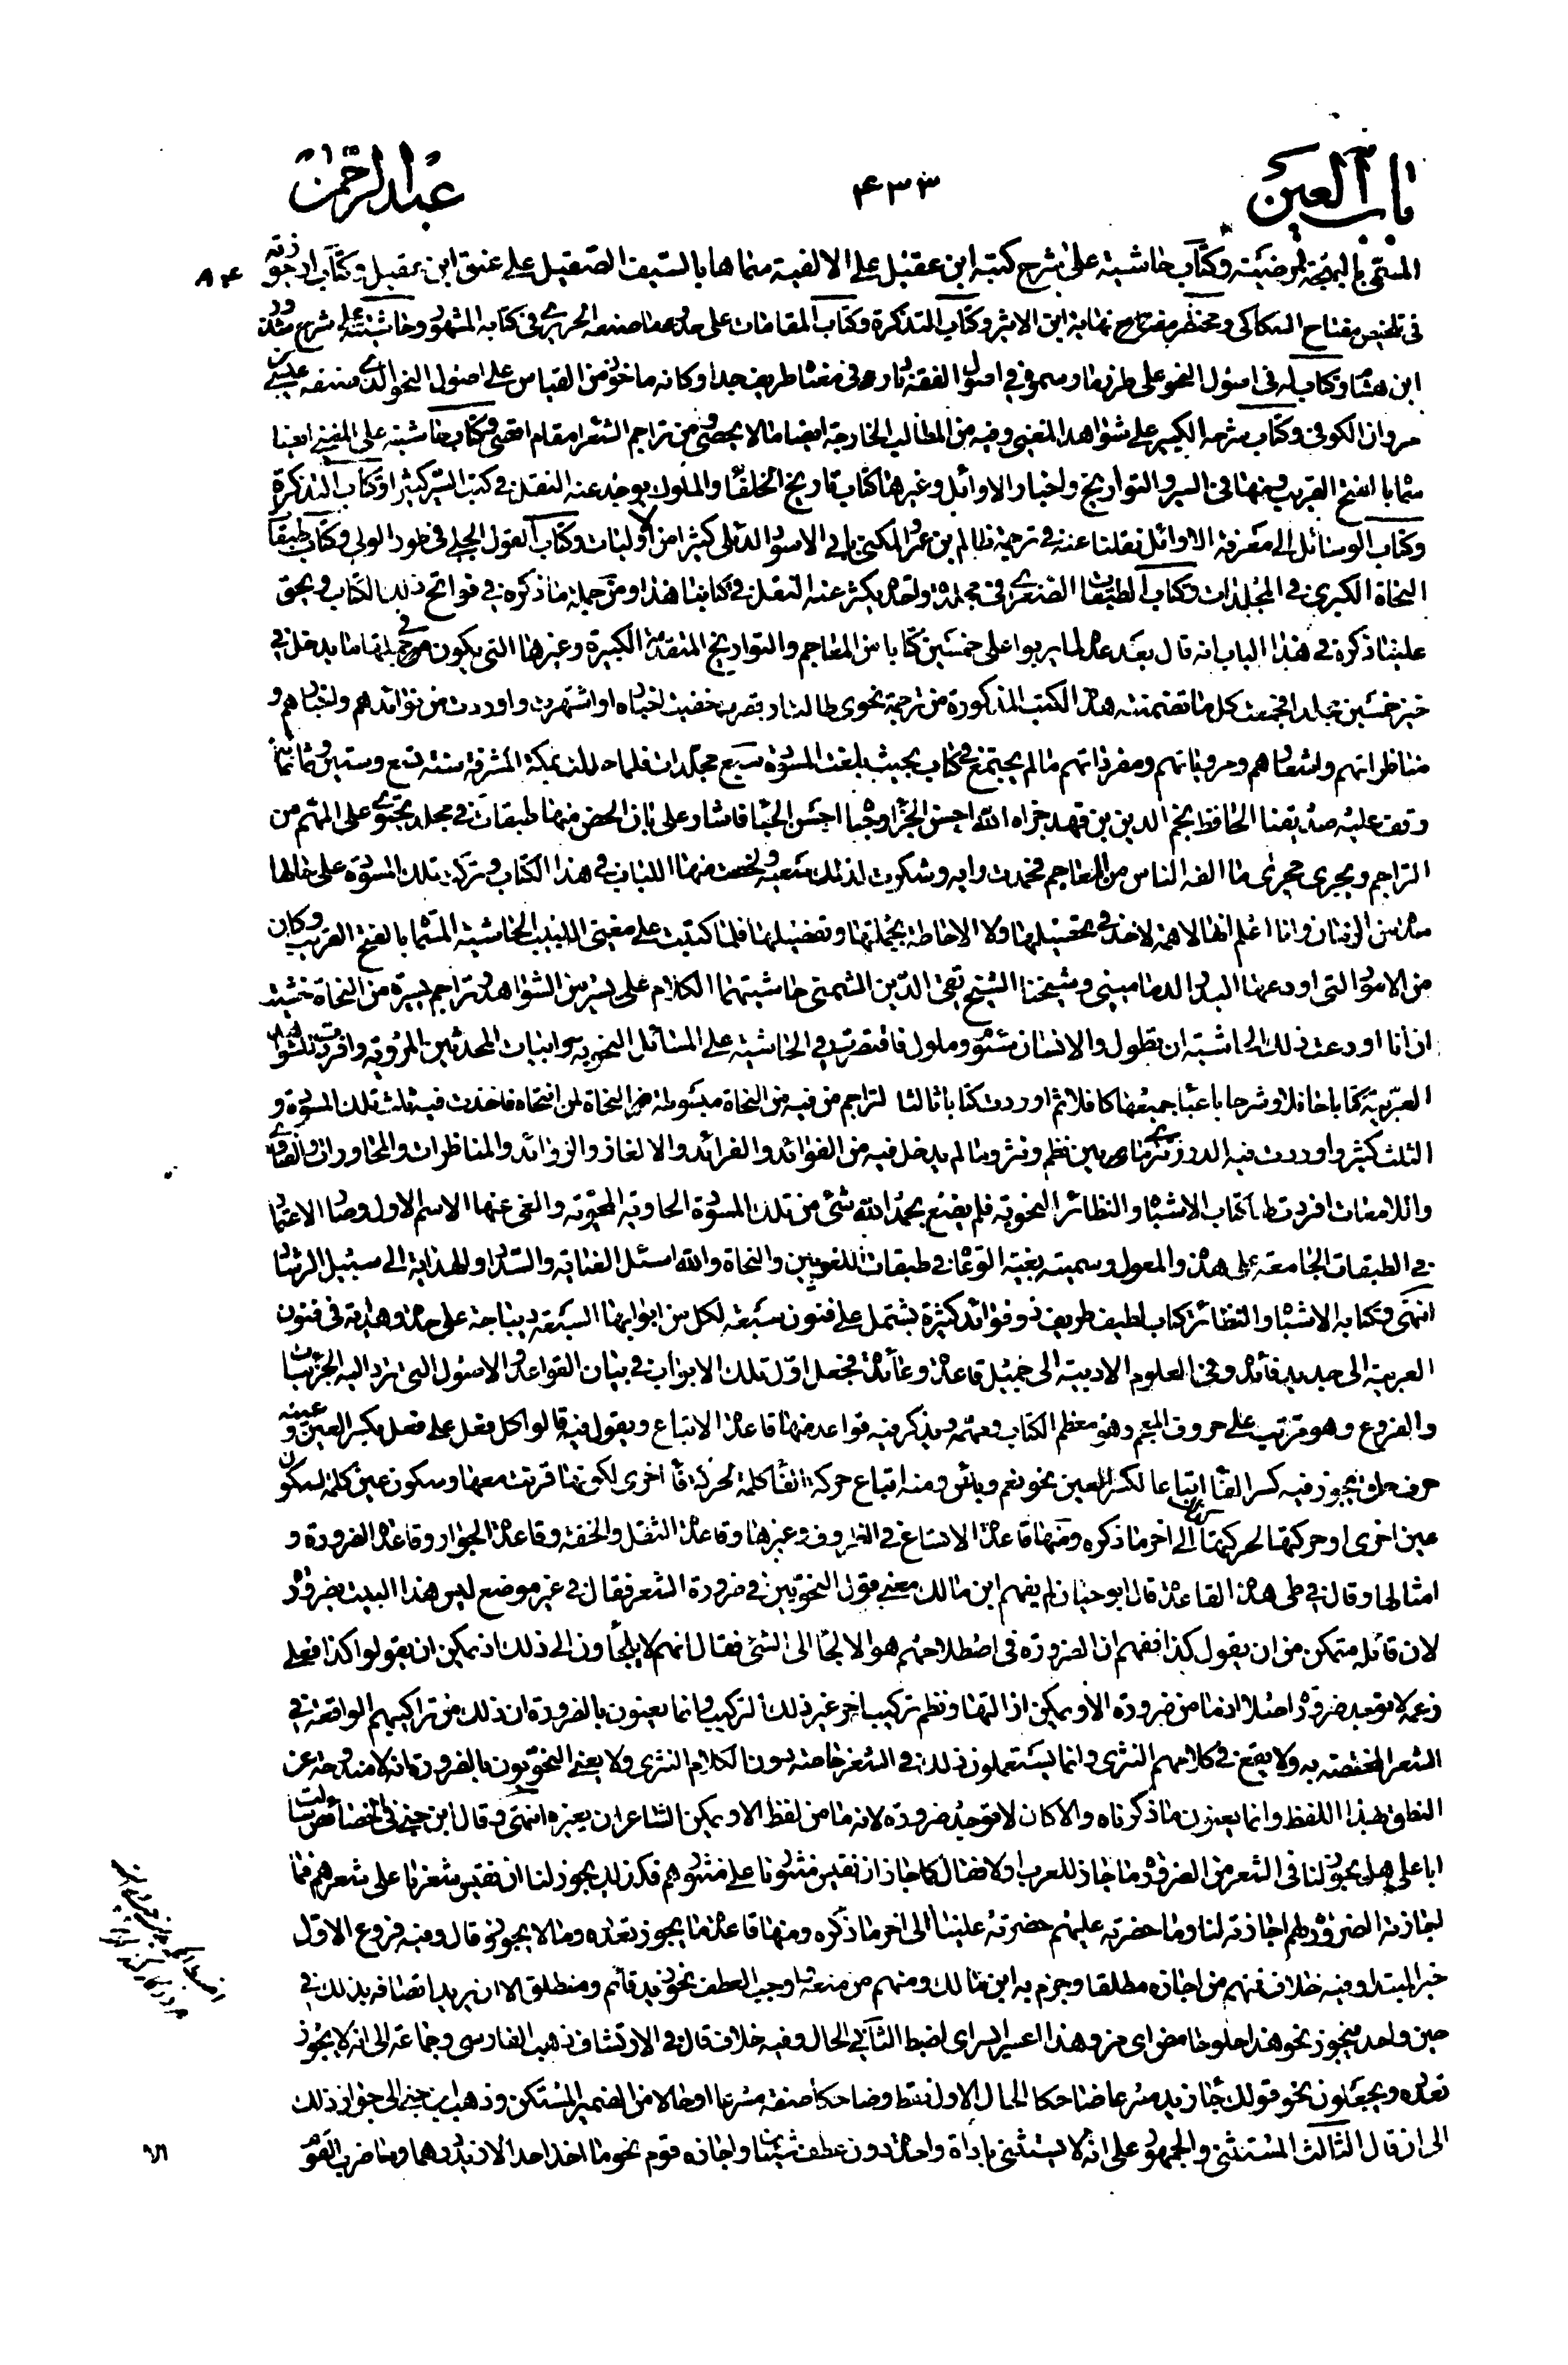 باب العين
٤٣٣
عبدالرحمن
المسمى بالبهجة المرضيّة وكتاب حاشية على شرح كتبه ابن عقيل على الالفية سماها بالسيف الصقيل على عنق ابن عقيل وكتاب ارجوزته
في تلخيص مفتاح السكاكي ومختصر نهاية ابن الاثير وكتاب التذكرة وكتاب المقامات على حد ما صنعه الحريري في كتابه المشهور وحاشيته على شرح شذور
ابن هشام وكتاب له في اصول النحو على طرز ما رسموه في اصول الفقه نادر في معناه طريف جدا وكانه ماخوذ من القياس على اصول النحو الذي صنفه عيسى بن
مروان الكوفى وكتاب شرحه الكبير على شواهد المغنى وفيه من المطالب الخارجة ايضا مالا يحصى ومن تراجم الشعراء مقام اقصى وكتاب حاشيته على المغنى ايضا
سماها بالفتح القريب ومنها في السير والتواريخ واخبار الاوائل وغيرها كتاب تاريخ الخلفاء والملوك يوجد عنه النقل في كتب السير كثيرا وكتاب التذكرة
وكتاب الوسائل الى معرفة الاوائل نقلنا عنه في ترجمة ظالم بن عمرو المكنى بابي الاسود الدئلى كثيرا من الاوليات وكتاب القول الجلى في طور الولى وكتاب طبقات
النحاة الكبرى في المجلدات وكتاب الطبقات الصغرى في مجلدة واحدة يكثر عنه النقل في كتابنا هذا ومن جملة ما ذكره في فواتح ذلك الكتاب ويحق
علينا ذكره في هذا الباب انه قال بعد عد لما يربوا على خمسين كتابا من المعاجم والتواريخ المتقدمة الكبيرة وغيرها التى يكون مجموعها ما يدخل في
خبر خمسين مجلدا فجمعت كل ما تضمنته هذه الكتب المذكورة من ترجمة نحوى طالت او قصرت خفيت اخباره او اشتهرت واوردت من فوائدهم واخبارهم و
مناظراتهم واشعارهم ومروياتهم ومفرداتهم مالم يجتمع في كتاب بحيث بلغت المسودة سبع مجلدات فلما حللت بمكة المشرفة سنة تسع وستين وثمانمائة
وقف عليه صديقنا الحافظ نجم الدين بن فهد جزاه الله احسن الجزا وحباه احسن الحبا فاشار على بان الخص منها طبقات في مجلد يحتوى على المهم من
التراجم ويجرى مجرى ما الفه الناس من المعاجم فحمدت رايه وشكرت لذلك سعيه ولخصت منها اللباب في هذا الكتاب وتركت تلك المسودة على حالها
مدة من الزمان وانا اعلم انها لا همة لاحد في تحصيلها ولا الاحاطة بجملتها وتفصيلها فلما كتبت على مغنى اللبيب الحاشية المسماة بالفتح القريب وكان
من الامور التى اودعها البدر الدمامينى وشيخنا الشيخ تقى الدين الشمنى حاشيتهما الكلام على يسير من الشواهد وتراجم يسيرة من النحاة خشيت
ان انا اودعت ذلك الحاشية ان تطول والانسان سئوم وملول فاقتصرت في الحاشية على المسائل النحوية وابيات المحدثين المروية وافردت للشواهد
العربية كتابا حافلا وشرحا باعبا جميعها كافلا ثم اوردت كتابا ثالثا لتراجم من فيه من النحاة مبسوطة من النحاة لمن انتحاه فاخذت فيه ثلث تلك المسودة و
الثلث كثير واوردت فيه الدرر نثرها ما بين نظم ونثر وما لم يدخل فيه من الفوائد والفرائد والالغاز والزوائد والمناظرات والمحاورات والفتاوى
واللامعات افردتها كتاب الاشباه والنظائر النحوية فلم يضع بحمد الله شئ من تلك المسودة الحاوية المحررة والغى عنها الاسم الاول وصار الاعتماد
في الطبقات الجامعة على هذه والمعول وسميته بغية الوعاة في طبقات اللغويين والنحاة والله اسئل العناية والسداد والهداية الى سبيل الرشاد
انتهى وكتابه الاشباه والنظائر كتاب لطيف طريف ذو فوائد كثيرة يشتمل على فنون سبعة لكل من ابوابها السبعة ديباجة على حدة وهداية في فنون
العربية الى جديد فائدة وفي العلوم الادبية الى جميل قاعدة وعائدة فجعل اول تلك الابواب في بيان القواعد والاصول التى ترد اليه الجزئيات
والفروع وهو مرتب على حروف المعجم وهو معظم الكتاب ومهمه ويذكر فيه قواعد منها قاعدة الاتباع ويقول فيه قالوا كل فعل على فعل بكسر العين وعينه
حرف حلق يجوز فيه كسر الفاء اتباعا لكسر العين نحو نعم وبئس ومنه اتباع حركة الفاء كلمة لحركة فاء اخرى لكونها قرنت معها وسكون عين كلمة لسكون
عين اخرى او حركتها لحركتها الى اخر ما ذكره ومنها قاعدة الاتساع في الظروف وغيرها وقاعدة الثقل والخفة وقاعدة الجوار وقاعدة الضرورة و
امثالها وقال في طى هذه القاعدة قال ابو حيان لم يفهم ابن مالك معنى قول النحويين في ضرورة الشعر فقال في غير موضع ليس هذا البيت بضرورة
لان قائله متمكن من ان يقول كذا ففهم ان الضرورة في اصطلاحهم هو الالجاء الى الشئ فقال انهم لا يلجأون الى ذلك اذ يمكن ان يقولوا كذا فعلى
زعمه لا توجد ضرورة اصلا اذ ما من ضرورة الا ويمكن ازالتها ونظم تركيب اخر غير ذلك التركيب وانما يعنون بالضرورة ان ذلك من تراكيبهم الواقعة في
الشعر المختصة به ولا يقع في كلامهم النثرى وانما يستعملون ذلك في الشعر خاصة دون الكلام النثرى ولا يعنى النحويون بالضرورة انه لا مندوحة عن
النطق بهذا اللفظ وانما يعنون ما ذكرناه والا كان لا توجد ضرورة لانه ما من لفظ الا ويمكن الشاعر ان يغيره انتهى وقال ابن جنى في الخصائص سالت
ابا على هل يجوز لنا في الشعر من الضرورة ما جاز للعرب اولا فقال كما جاز ان نقيس منثورنا على منثورهم فكذلك يجوز لنا ان نقيس شعرنا على شعرهم فما
اجازته الضرورة لهم اجازته لنا وما حضرته عليهم حضرته علينا الى اخر ما ذكره ومنها قاعدة ما يجوز تعدده وما لا يجوز قال وفيه فروع الاول
خبر المبتدا وفيه خلاف فمنهم من اجازه مطلقا وجزم به ابن مالك ومنهم من منعه واوجب العطف نحو زيد قائم ومنطلق الا ان يريد اتصافه بذلك في
حين واحد فيجوز نحو هذا حلو حامض اى مز وهذا اعسر ايسر اى اضبط الثاني الحال وفيه خلاف قال في الارتشاف ذهب الفارسى وجماعة الى انه لا يجوز
تعدده ويجعلون نحو قولك جاء زيد مسرعا ضاحكا الحال الاول فقط وضاحكا صفة مسرعا او حالا من الضمير المستكن وذهب ابن جنى الى جواز ذلك
الى ان قال الثالث المستثنى والجمهور على انه لا يستثنى باداة واحدة دون عطف شيئان واجازه قوم نحو ما اخذ احد الا زيد درهما وما ضرب القوم